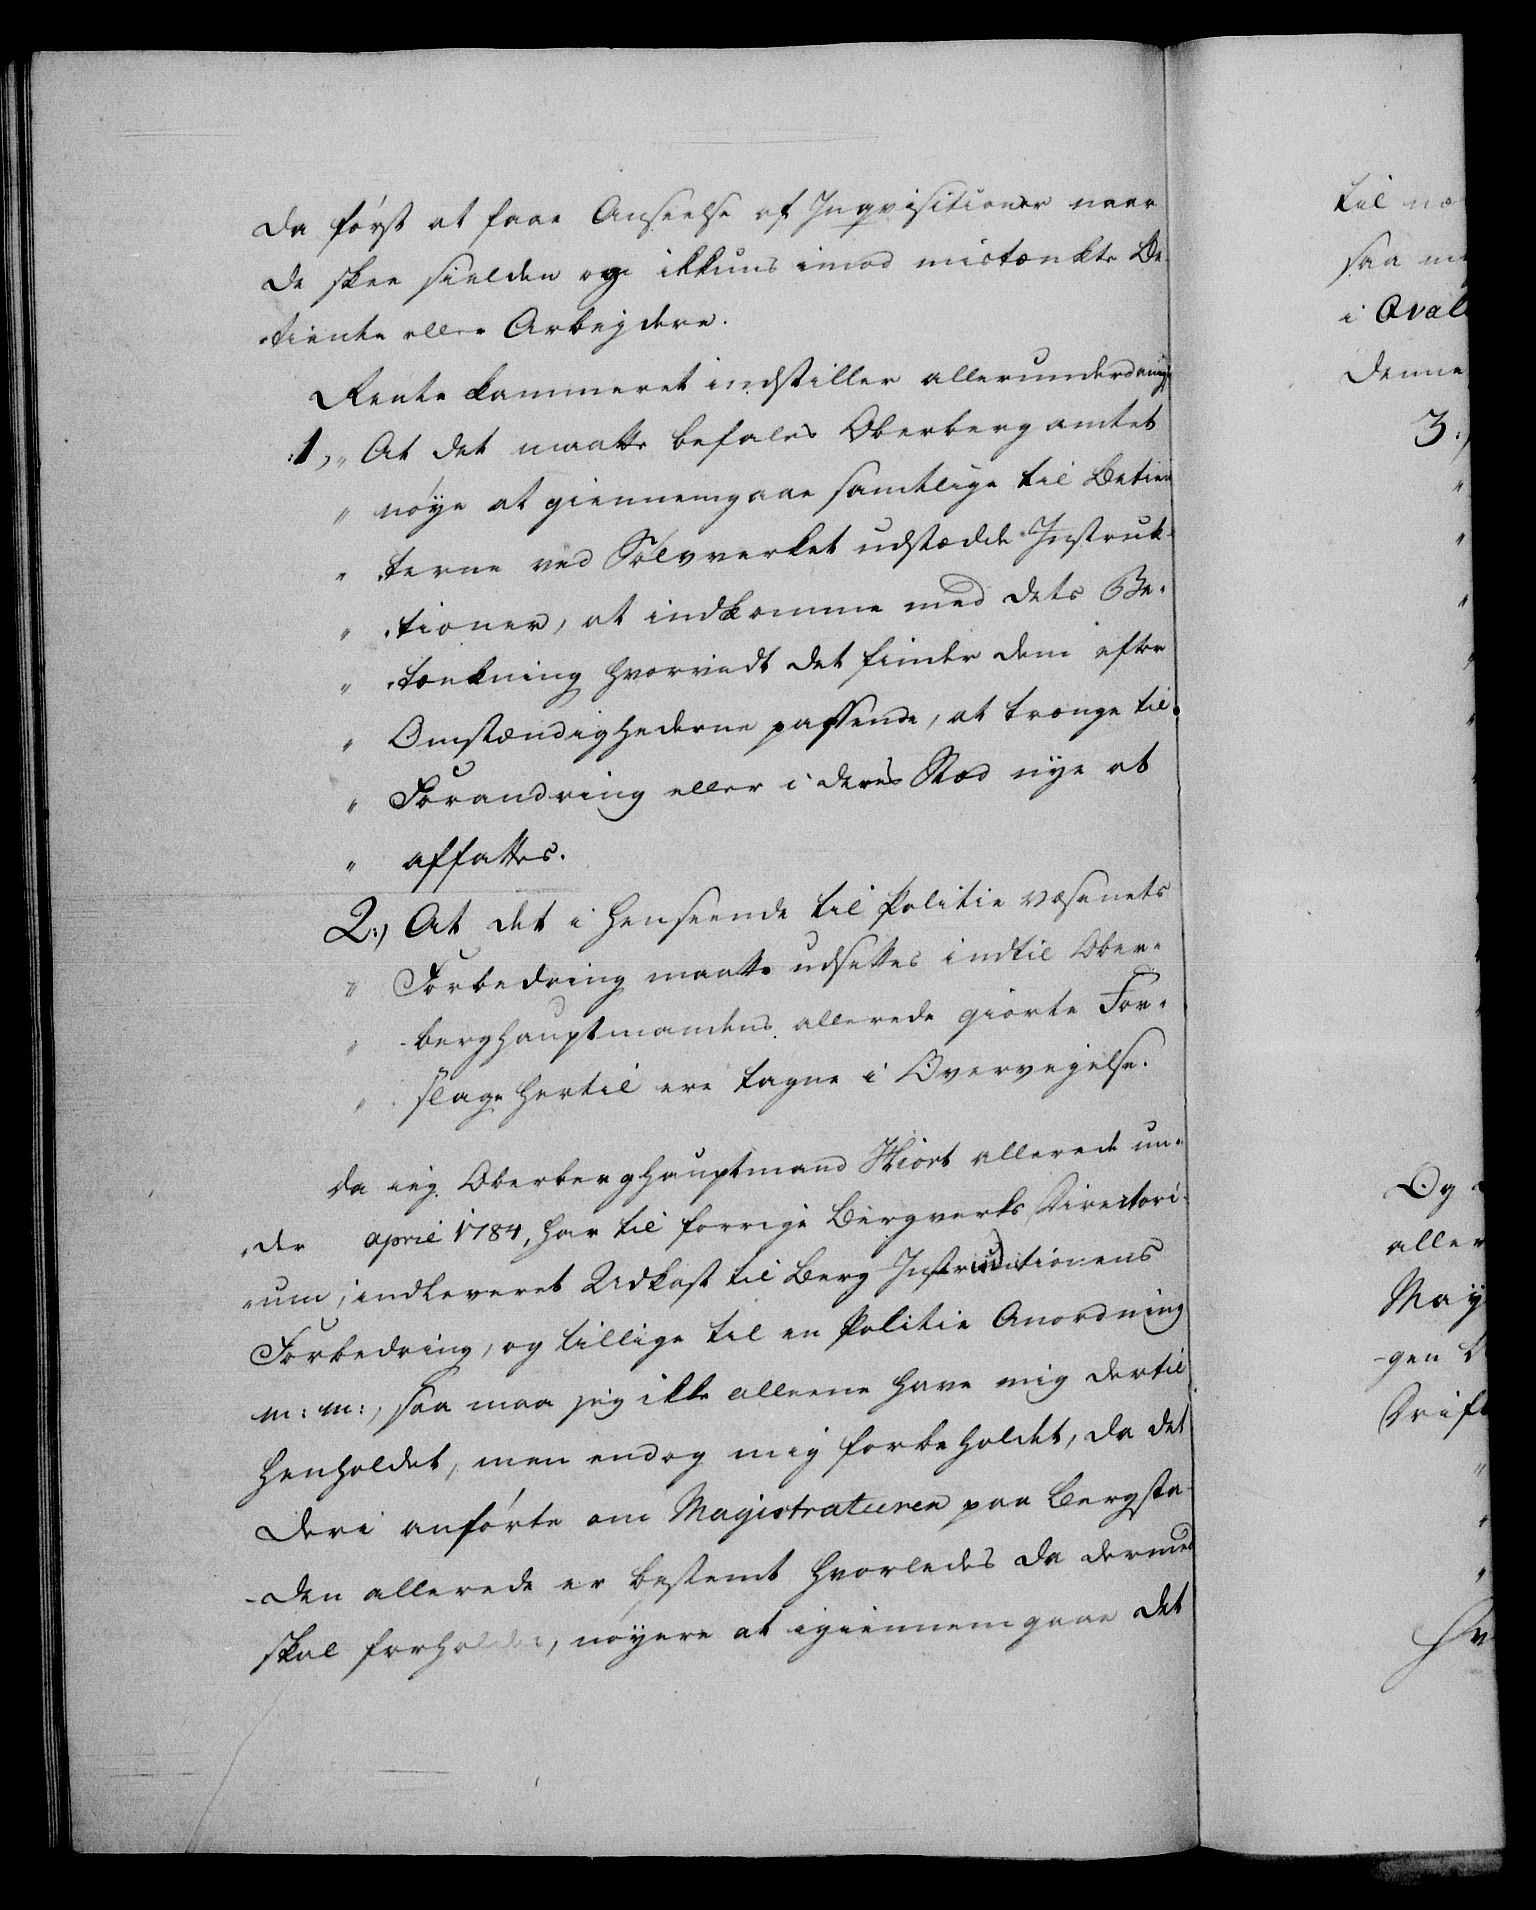 da först at faae Anseelse af Inqvisitioner naar
de skee sielden og ikkuns imod mistænkte Be-
-tiente eller Arbejdere.
Rente kammeret indstiller allerunderdanigst
:1, " At det maatte befales Oberbergamtet
" nöye at giennemgaae samtlige til Betien
" -terne ved Sølvverket udstædde Instruk-
" -tioner, at indkomme med dets Be-
" -tænkning hvorvidt det finder dem efter
" Omstændighederne passende, at trænge til
" Forandring eller i deres Stæd nye at
" affattes.
2:, At det i Henseende til Politie væsenets
" Forbedring maatte udsettes indtil Ober-
" -berghauptmandens allerede giorte For-
" slage hertil ere tagne i Overvejelse.
Da ieg Oberberghauptmand Hiort allerede un-
-der april 1784, har til forrige Bergverks Directori-
-um, indleveret Udkast til Berg Instructionens
Forbedring, og tillige til en Politie Anordning
m: m:, saa maa jeg ikke alleene have mig dertil
henholdet, men endog mig forbeholdet, da det
deri anförte om Magistraturen paa Bergstæ-
-den allerede er bestemt hvorledes da dermed
skal forholdes, nöyere at igiennemgaae det
til næ
saa m
i Qval
denne
3:,
"
"
"
"
"
Og
aller
May
-gen
Drift
"
"
"
Hv